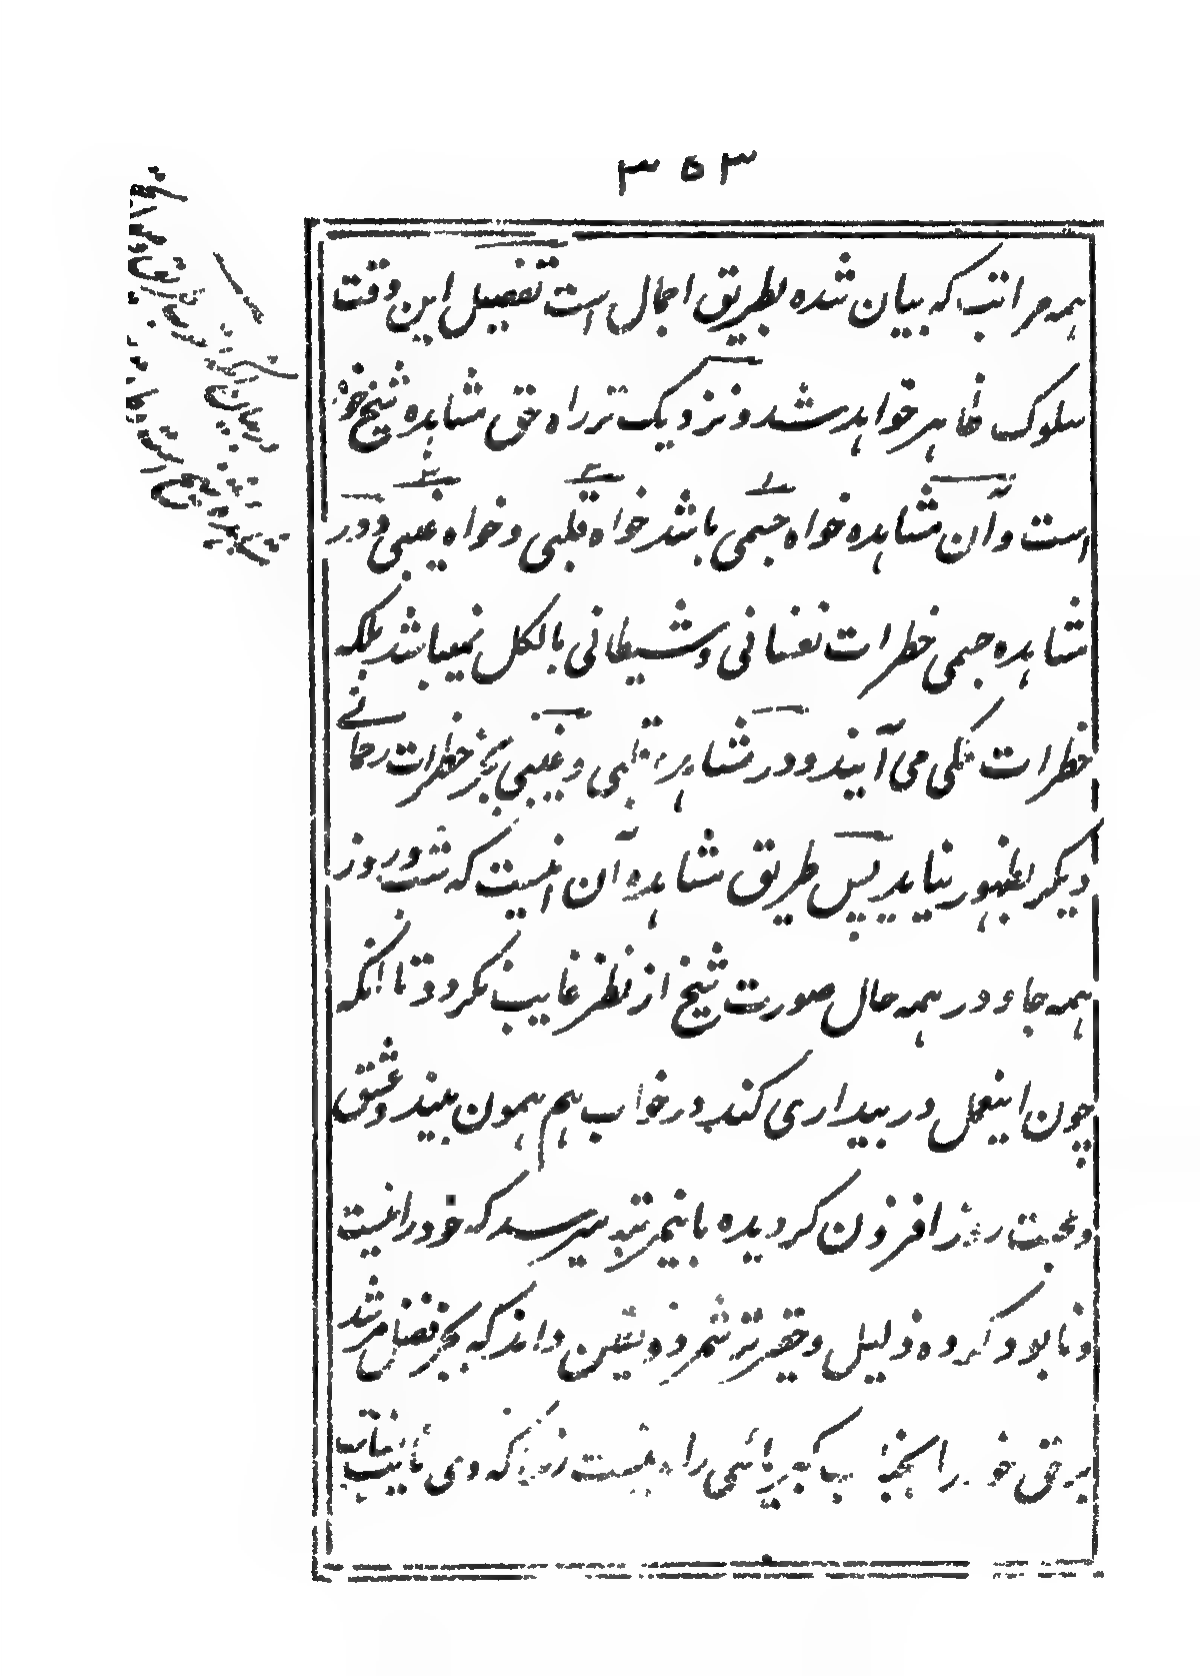 ۳۵۳
همه مراتب که بیان شده بطریق اجمال است تفصیل این وقت
سلوک ظاهر خواهد شد و نزدیک تر راه حق مشاهده شیخ خود
است و آن مشاهده خواه جسمی باشد خواه قلبی و خواه غیبی و در
مشاهده جسمی خطرات نفسانی و شیطانی بالکل نمیباشد بلکه
خطرات ملکی می آیند و در مشاهده قلبی و غیبی بجز خطرات رحمانے
دیگر بظهور نیاید پس طریق مشاهده آن اینست که شب و روز
همه جا و در همه حال صورت شیخ از نظر غایب نگردد تا آنکه
چون اینعمل در بیداری کند در خواب هم همون بیند و عشق
و محبت روز افزون گردیده باینمرتبه میرسد که خود را نیست
و نابود کرده ذلیل و حقیرتر شمرده یقین داند که بجز فضل مرشد
برحق خود را هیچ راه نیست زیرا که وی نایب
در بیان آنکه
مشاهده شیخ است